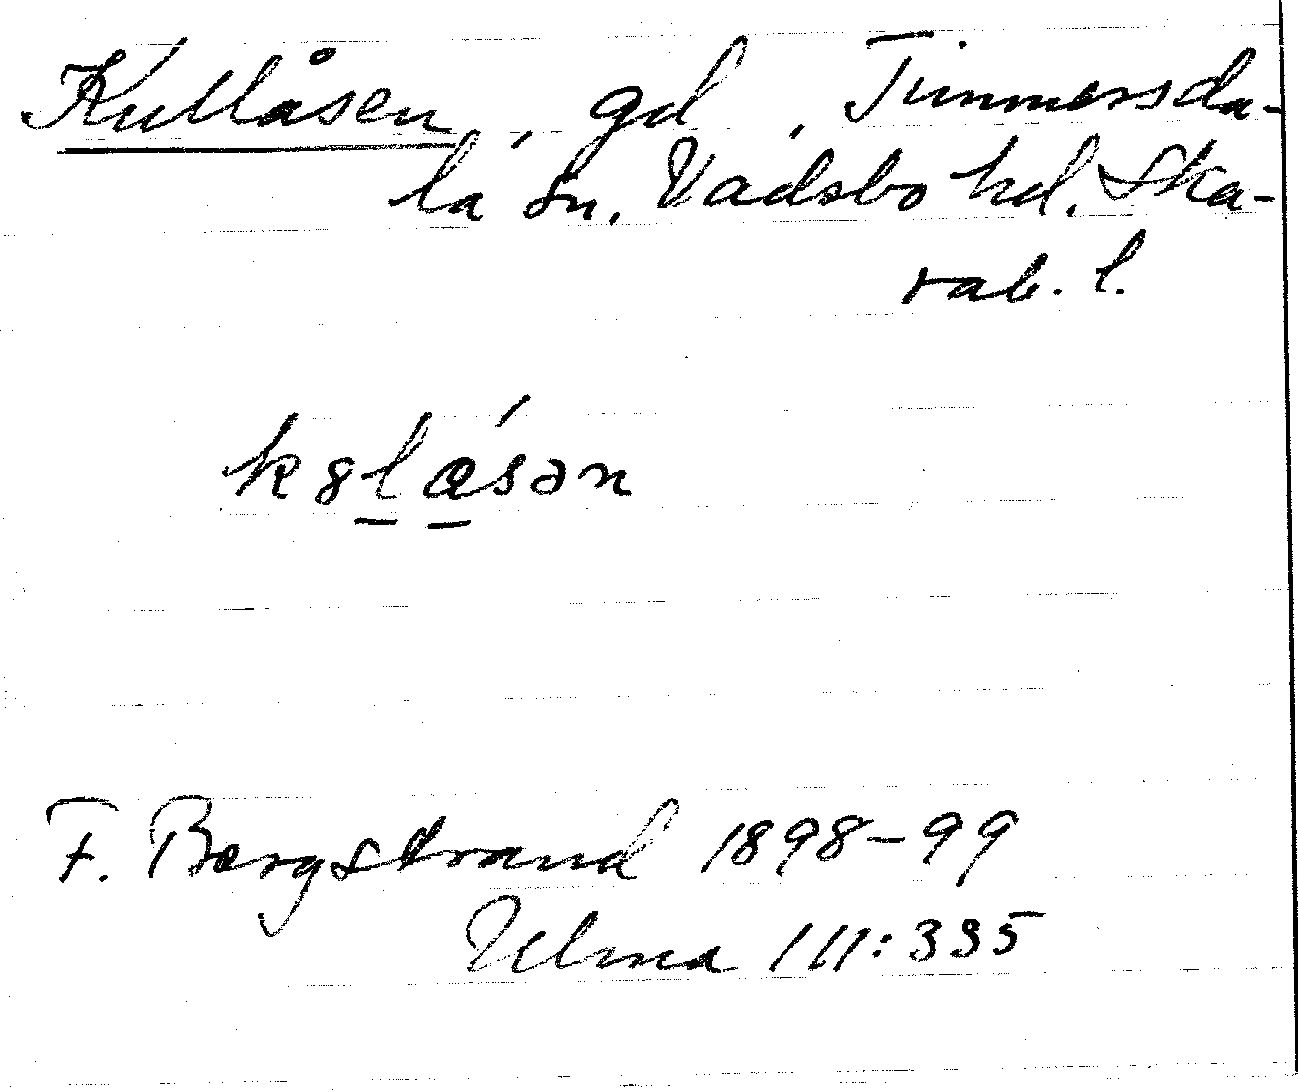 Kullåsen, gd, Timmersda-
la sn. Vadsbo hd. Ska-
rab. l.
k8læ´sən
F. Bergstrand 1898-99
Ulma 111:335